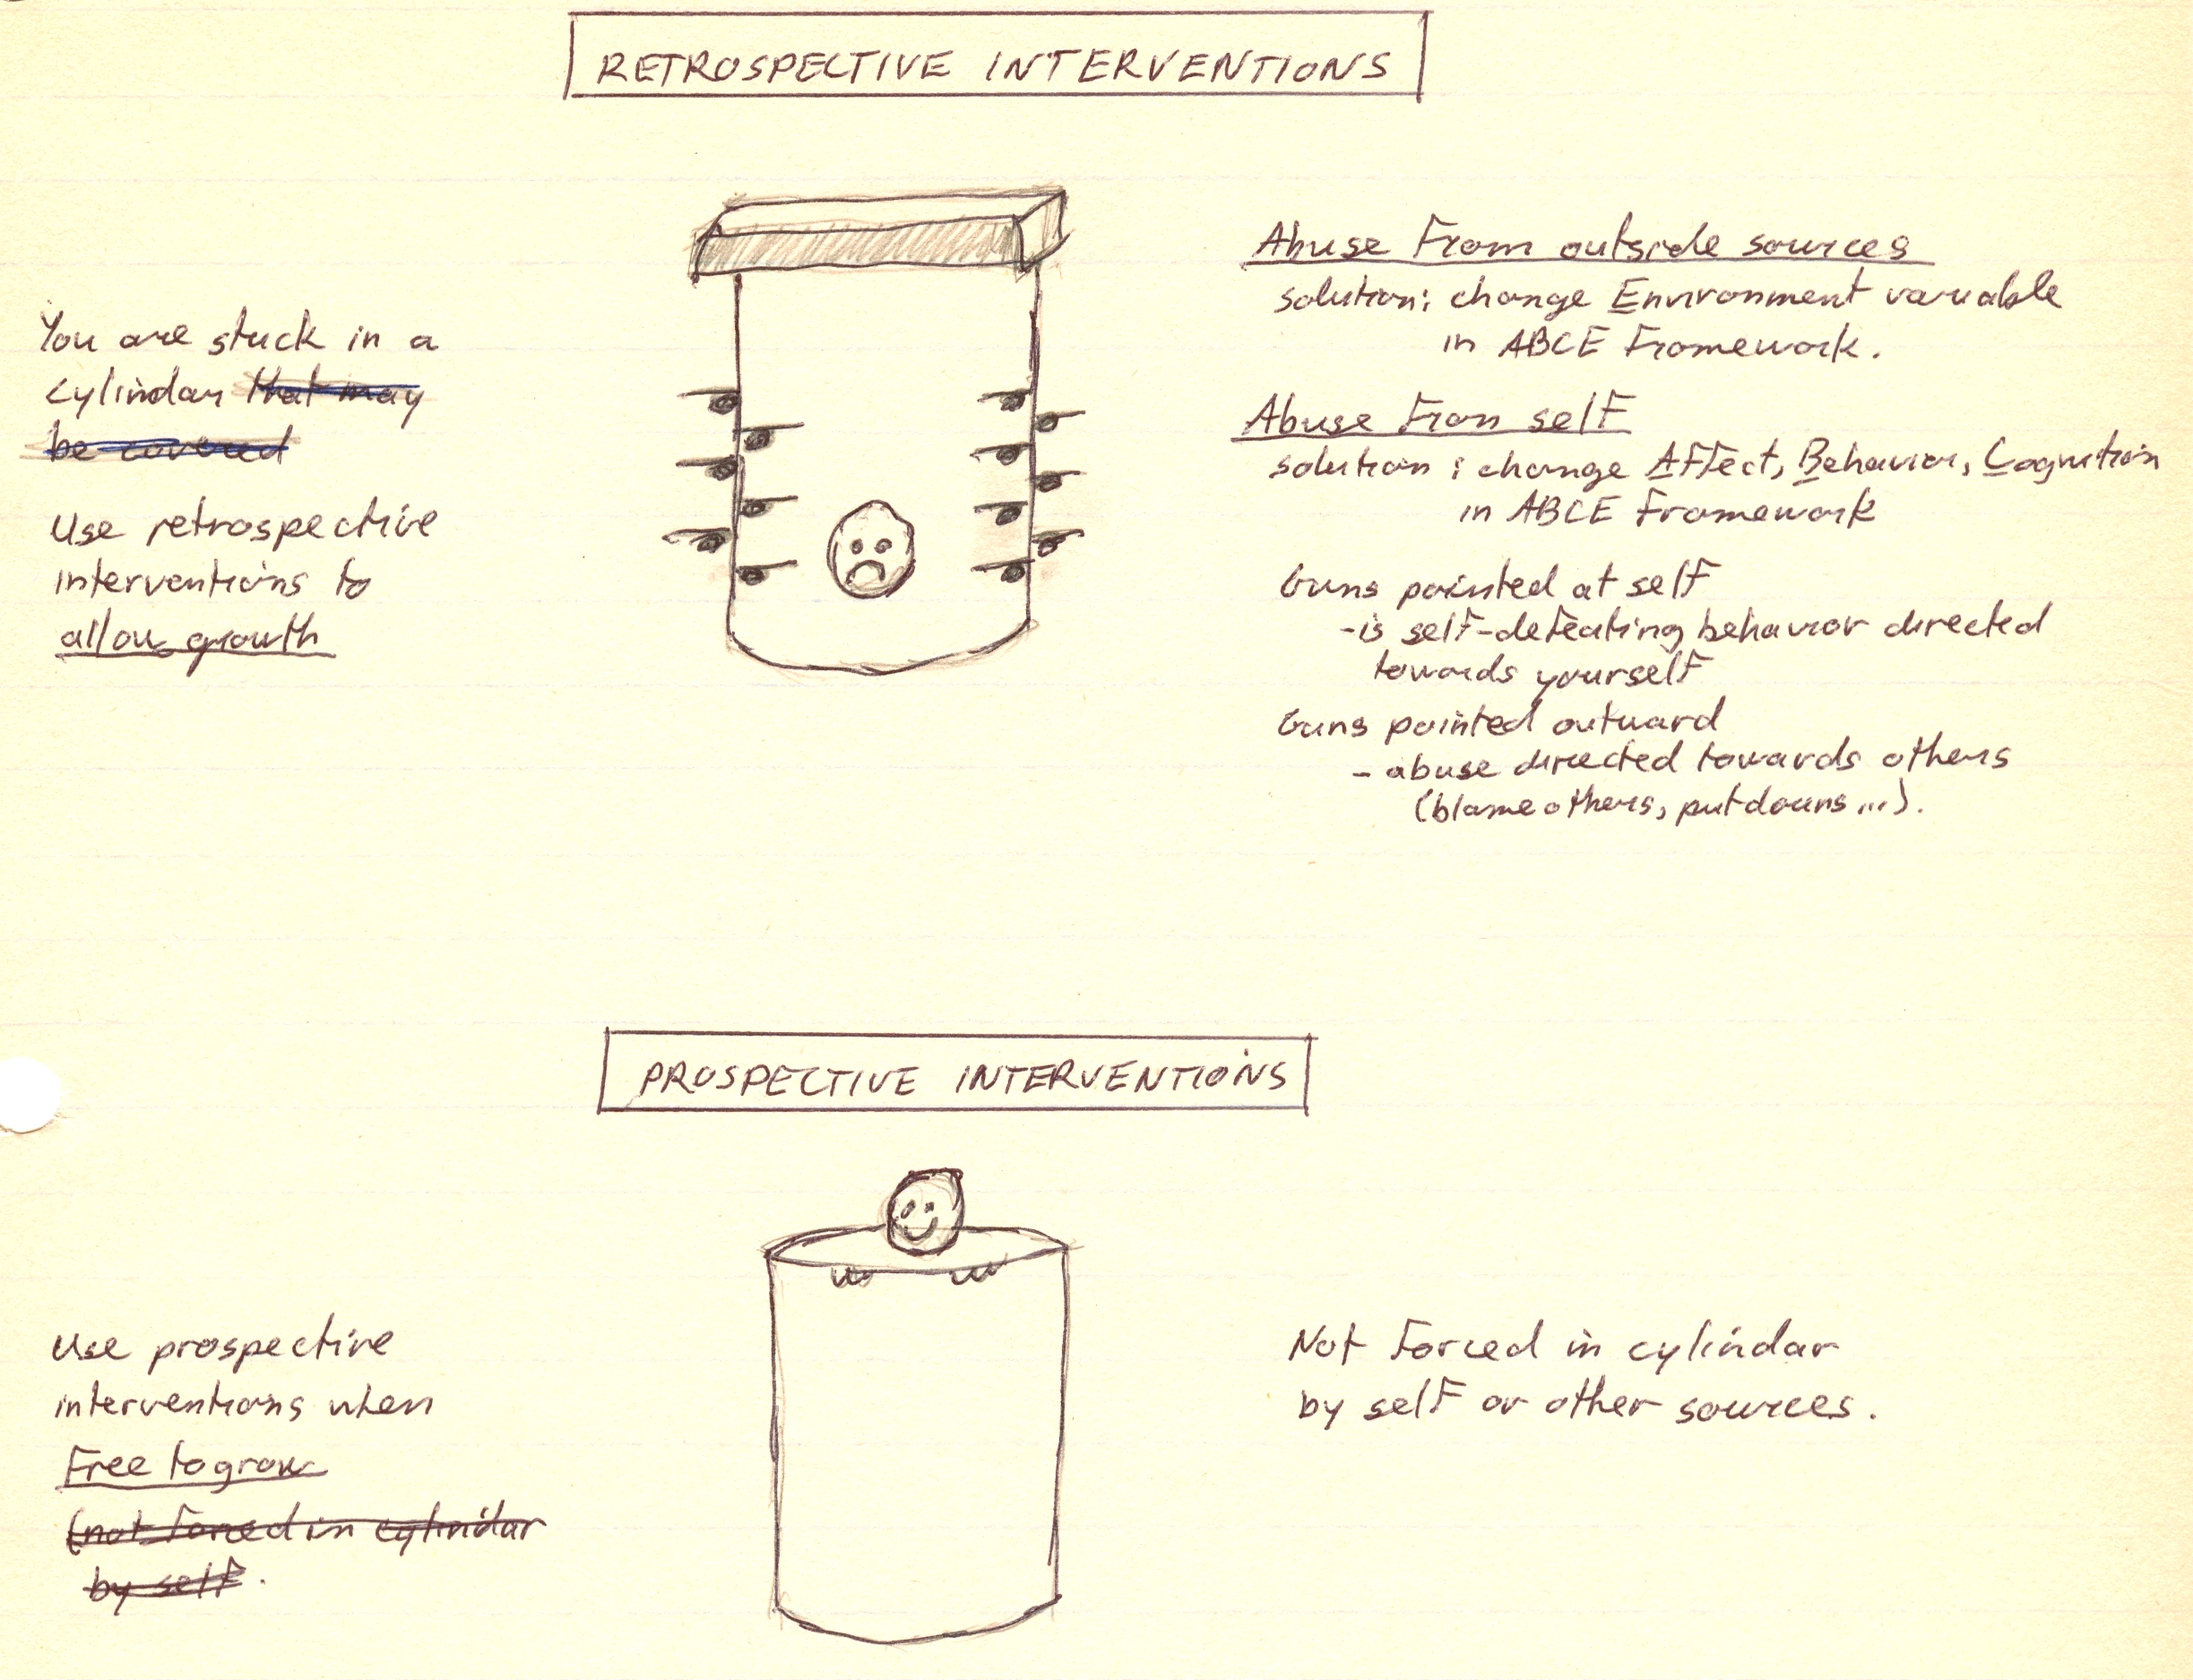 RETROSPECTIVE INTERVENTIONS
You are stuck in a
cylindar that may
be covered
Use retrospective
interventions to
allow growth
Abuse From outside sources
solution: change Environment variable
in ABCE Framework.
Abuse From self
solution: change Affect, Behavior, Cognition
in ABCE Framework
Guns pointed at self
-is self-defeating behavior directed
towards yourself
Guns pointed outward
- abuse directed towards others
(blame others, putdowns...).
PROSPECTIVE INTERVENTIONS
Use prospective
interventions when
Free to grow
(not forced in cylindar
by self.
Not Forced in cylindar
by self or other sources.